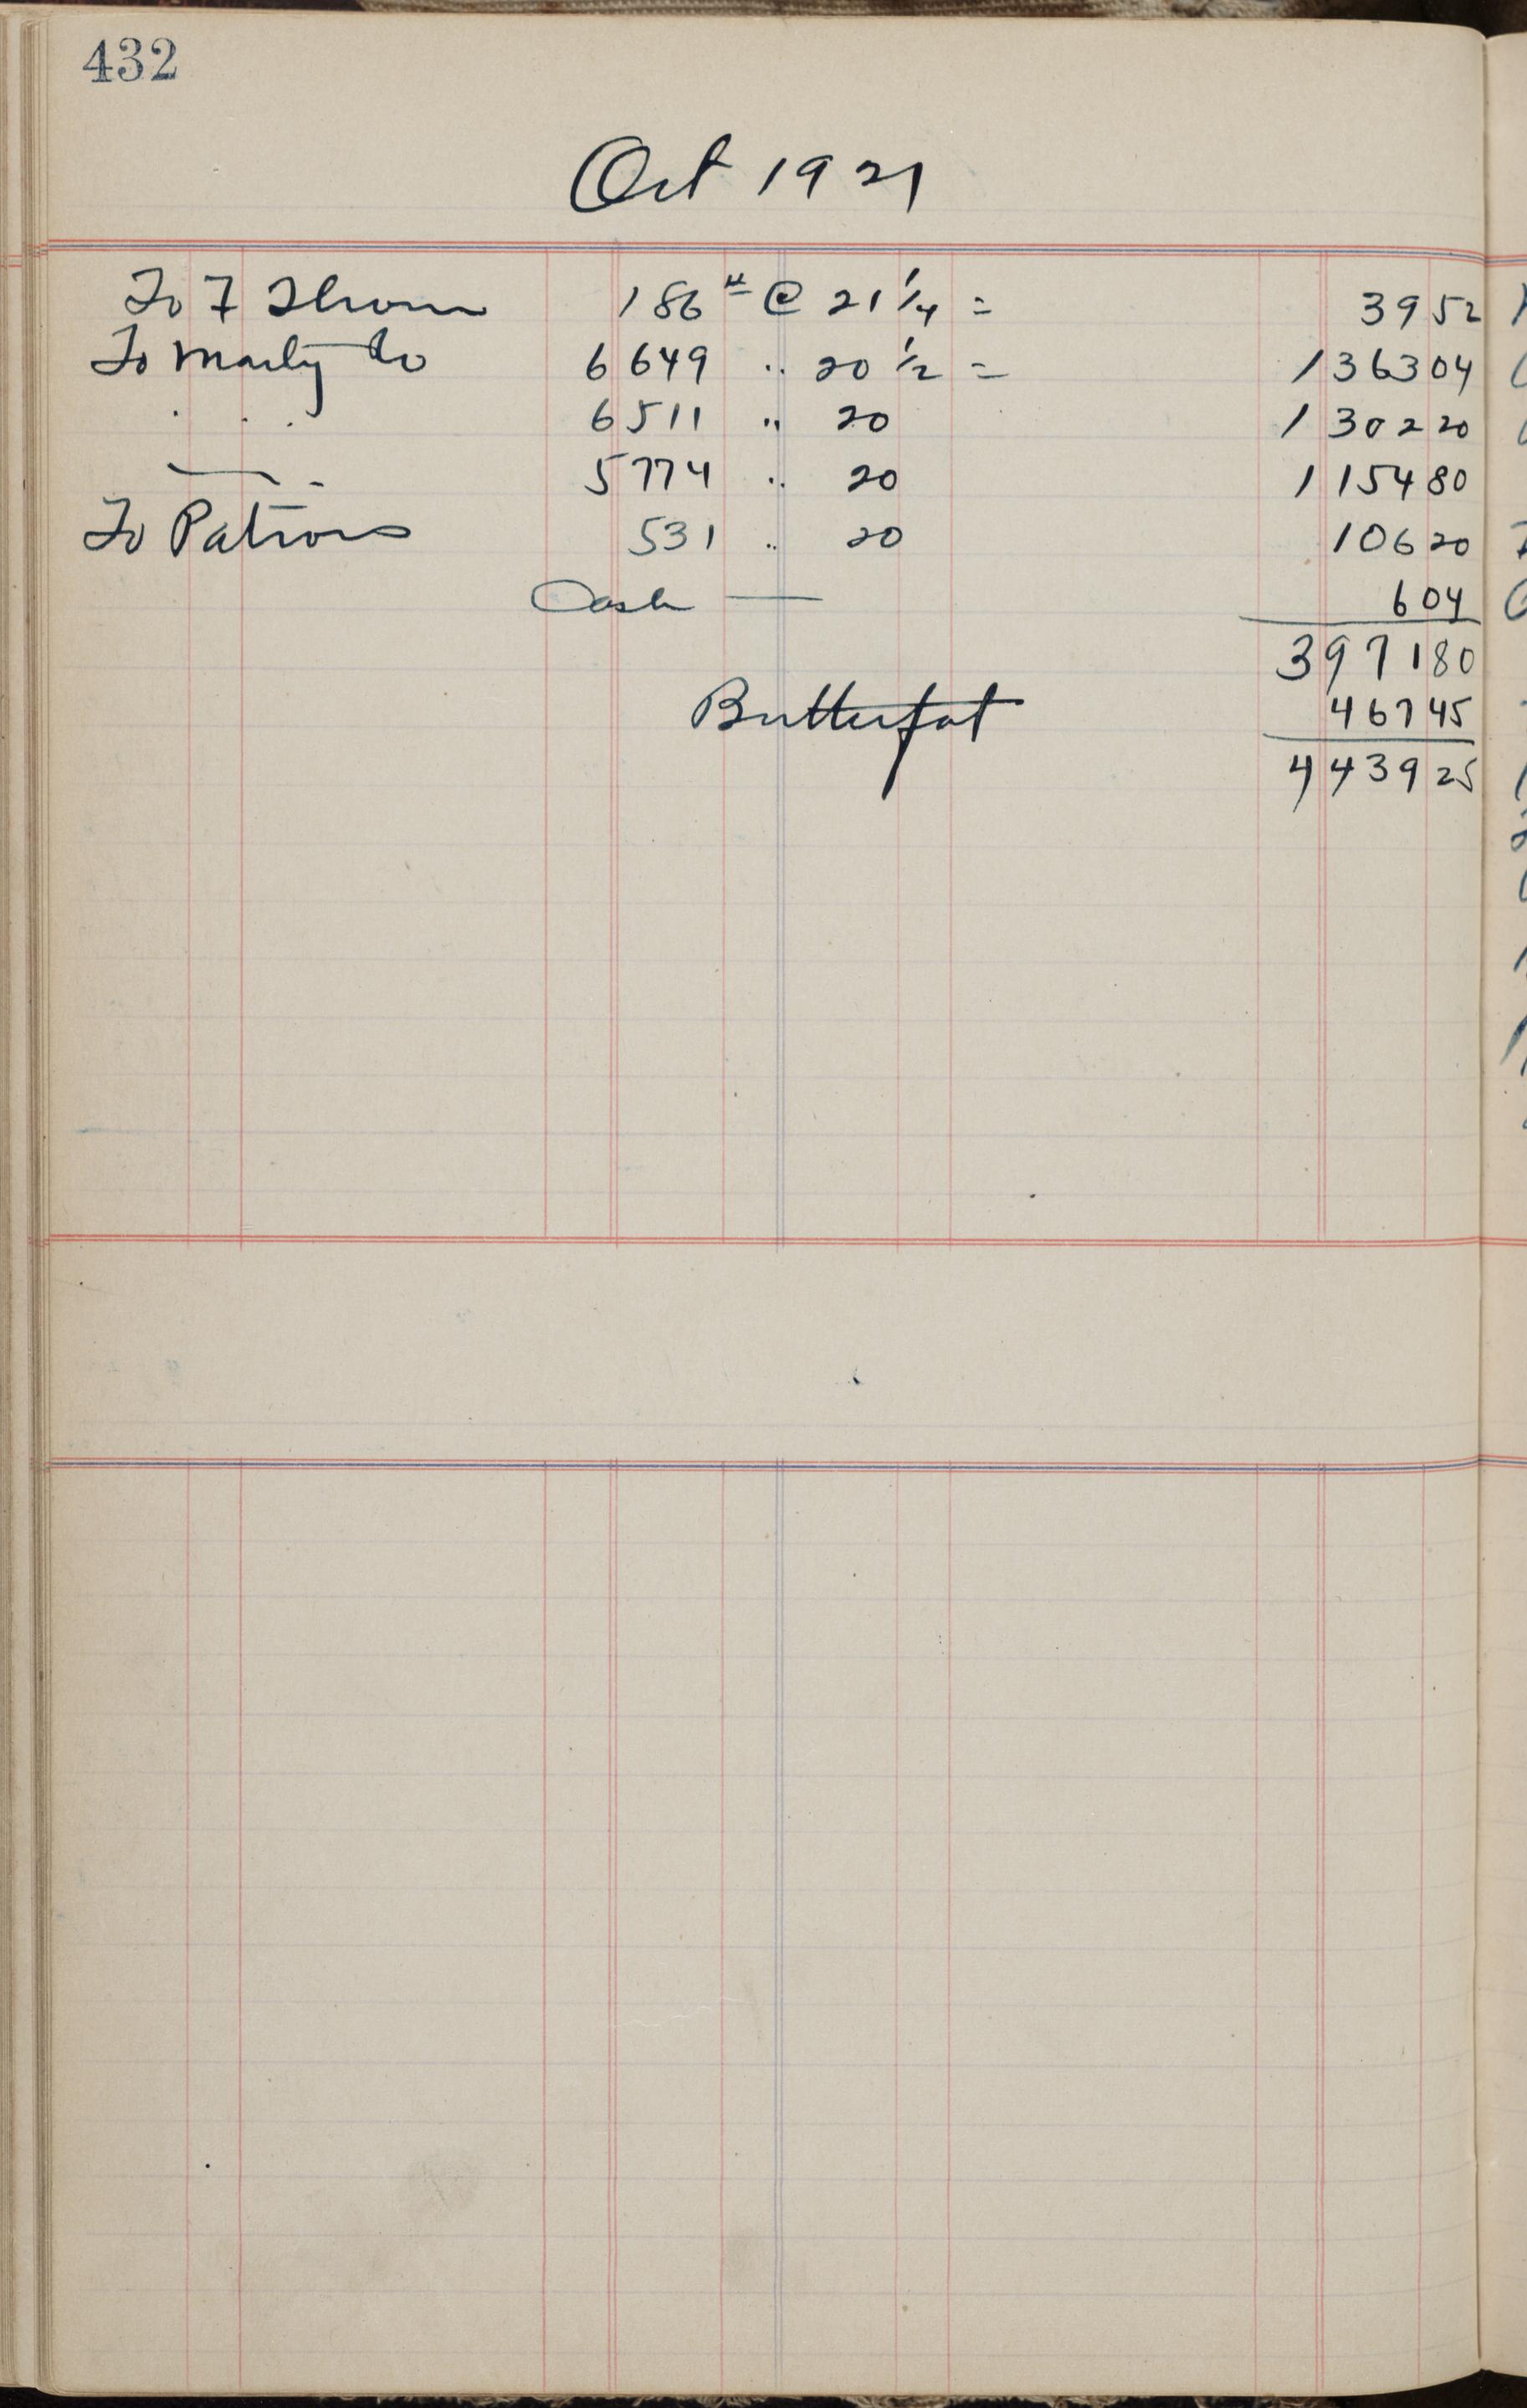 432
Oct 1921
To F Thom 186 # @ 21 1/4 = 3952
To Marty Co 6649 " 20 1/2 = 136304
" " " 6511 " 20 130220
5774 " 20 115480
To Patrons 531 " 20 10620
Cash — 604
397180
Butterfat 46745
443925